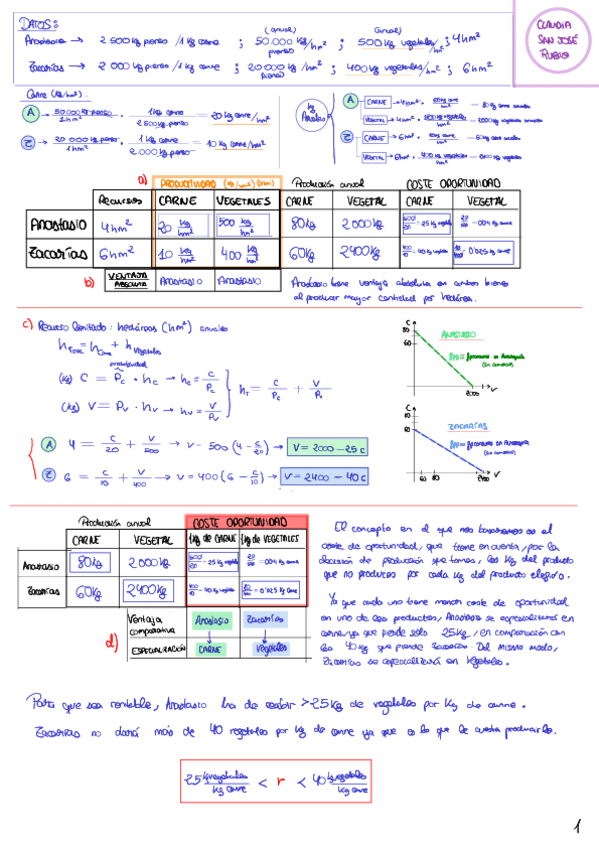 DATOS:
CLAUDIA
SAN JOSÉ
RUBIO
(anual)
(anual)
Anastasio → 2.500 kg pienso / 1 kg carne ; 50.000 kg/hm² pienso ; 500 kg vegetales/hm² ; 4 hm²
Zacarías → 2.000 kg pienso / 1 kg carne ; 20.000 kg/hm² pienso ; 400 kg vegetales/hm² ; 6 hm²
Carne (kg/hm²):
A → 50.000 kg pienso / 1 hm² · 1 kg carne / 2.500 kg pienso = 20 kg carne/hm²
Z → 20.000 kg pienso / 1 hm² · 1 kg carne / 2.000 kg pienso = 10 kg carne/hm²
kg Anuales
A CARNE → 4 hm² · 20 kg carne/hm² = 80 kg carne anuales
VEGETAL → 4 hm² · 500 kg vegetales/hm² = 2000 kg vegetales anuales
Z CARNE → 6 hm² · 10 kg carne/hm² = 60 kg carne anuales
VEGETAL → 6 hm² · 400 kg vegetales/hm² = 2400 kg vegetales anuales
a) PRODUCTIVIDAD (kg/hm²) Producción anual COSTE OPORTUNIDAD
Recursos CARNE VEGETALES CARNE VEGETAL CARNE VEGETAL
Anastasio 4 hm² 20 kg/hm² 500 kg/hm² 80 kg 2000 kg 500/20 = 25 kg vegetales 20/500 = 0'04 kg carne
Zacarías 6 hm² 10 kg/hm² 400 kg/hm² 60 kg 2400 kg 400/10 = 40 kg vegetales 10/400 = 0'025 kg carne
b) VENTAJA ABSOLUTA Anastasio Anastasio
Anastasio tiene ventaja absoluta en ambos bienes
al producir mayor cantidad por hectárea.
c) Recurso limitado: hectáreas (hm²) anuales
h Total = h Carne + h Vegetales
productividad
(kg) C = Pc · hc → hc = C/Pc
(kg) V = Pv · hv → hv = V/Pv
hT = C/Pc + V/Pv
A 4 = C/20 + V/500 → V = 500 (4 - C/20) → V = 2000 - 25 C
Z 6 = C/10 + V/400 → V = 400 (6 - C/10) → V = 2400 - 40 C
C
80
60
ANASTASIO
2000
V
C
80
60
ZACARÍAS
60 80
2400
V
Producción anual COSTE OPORTUNIDAD
CARNE VEGETAL 1 kg de CARNE 1 kg de VEGETALES
Anastasio 80 kg 2000 kg 500/20 = 25 kg vegetales 20/500 = 0'04 kg carne
Zacarías 60 kg 2400 kg 400/10 = 40 kg vegetales 10/400 = 0'025 kg carne
d) Ventaja comparativa Anastasio Zacarías
ESPECIALIZACIÓN CARNE Vegetales
El concepto en el que nos basaremos es el
coste de oportunidad, que tiene en cuenta, por la
decisión de producción que tomas, los kg del producto
que no produces por cada kg del producto elegido.
Ya que cada uno tiene menor coste de oportunidad
en uno de los productos, Anastasio se especializará en
carne ya que pierde sólo 25 kg, en comparación con
los 40 kg que pierde Zacarías. Del mismo modo,
Zacarías se especializará en vegetales.
Para que sea rentable, Anastasio ha de recibir >25 kg de vegetales por kg de carne.
Zacarías no dará más de 40 vegetales por kg de carne ya que es lo que le cuesta producirla.
25 kg vegetales / kg carne < r < 40 kg vegetales / kg carne
1